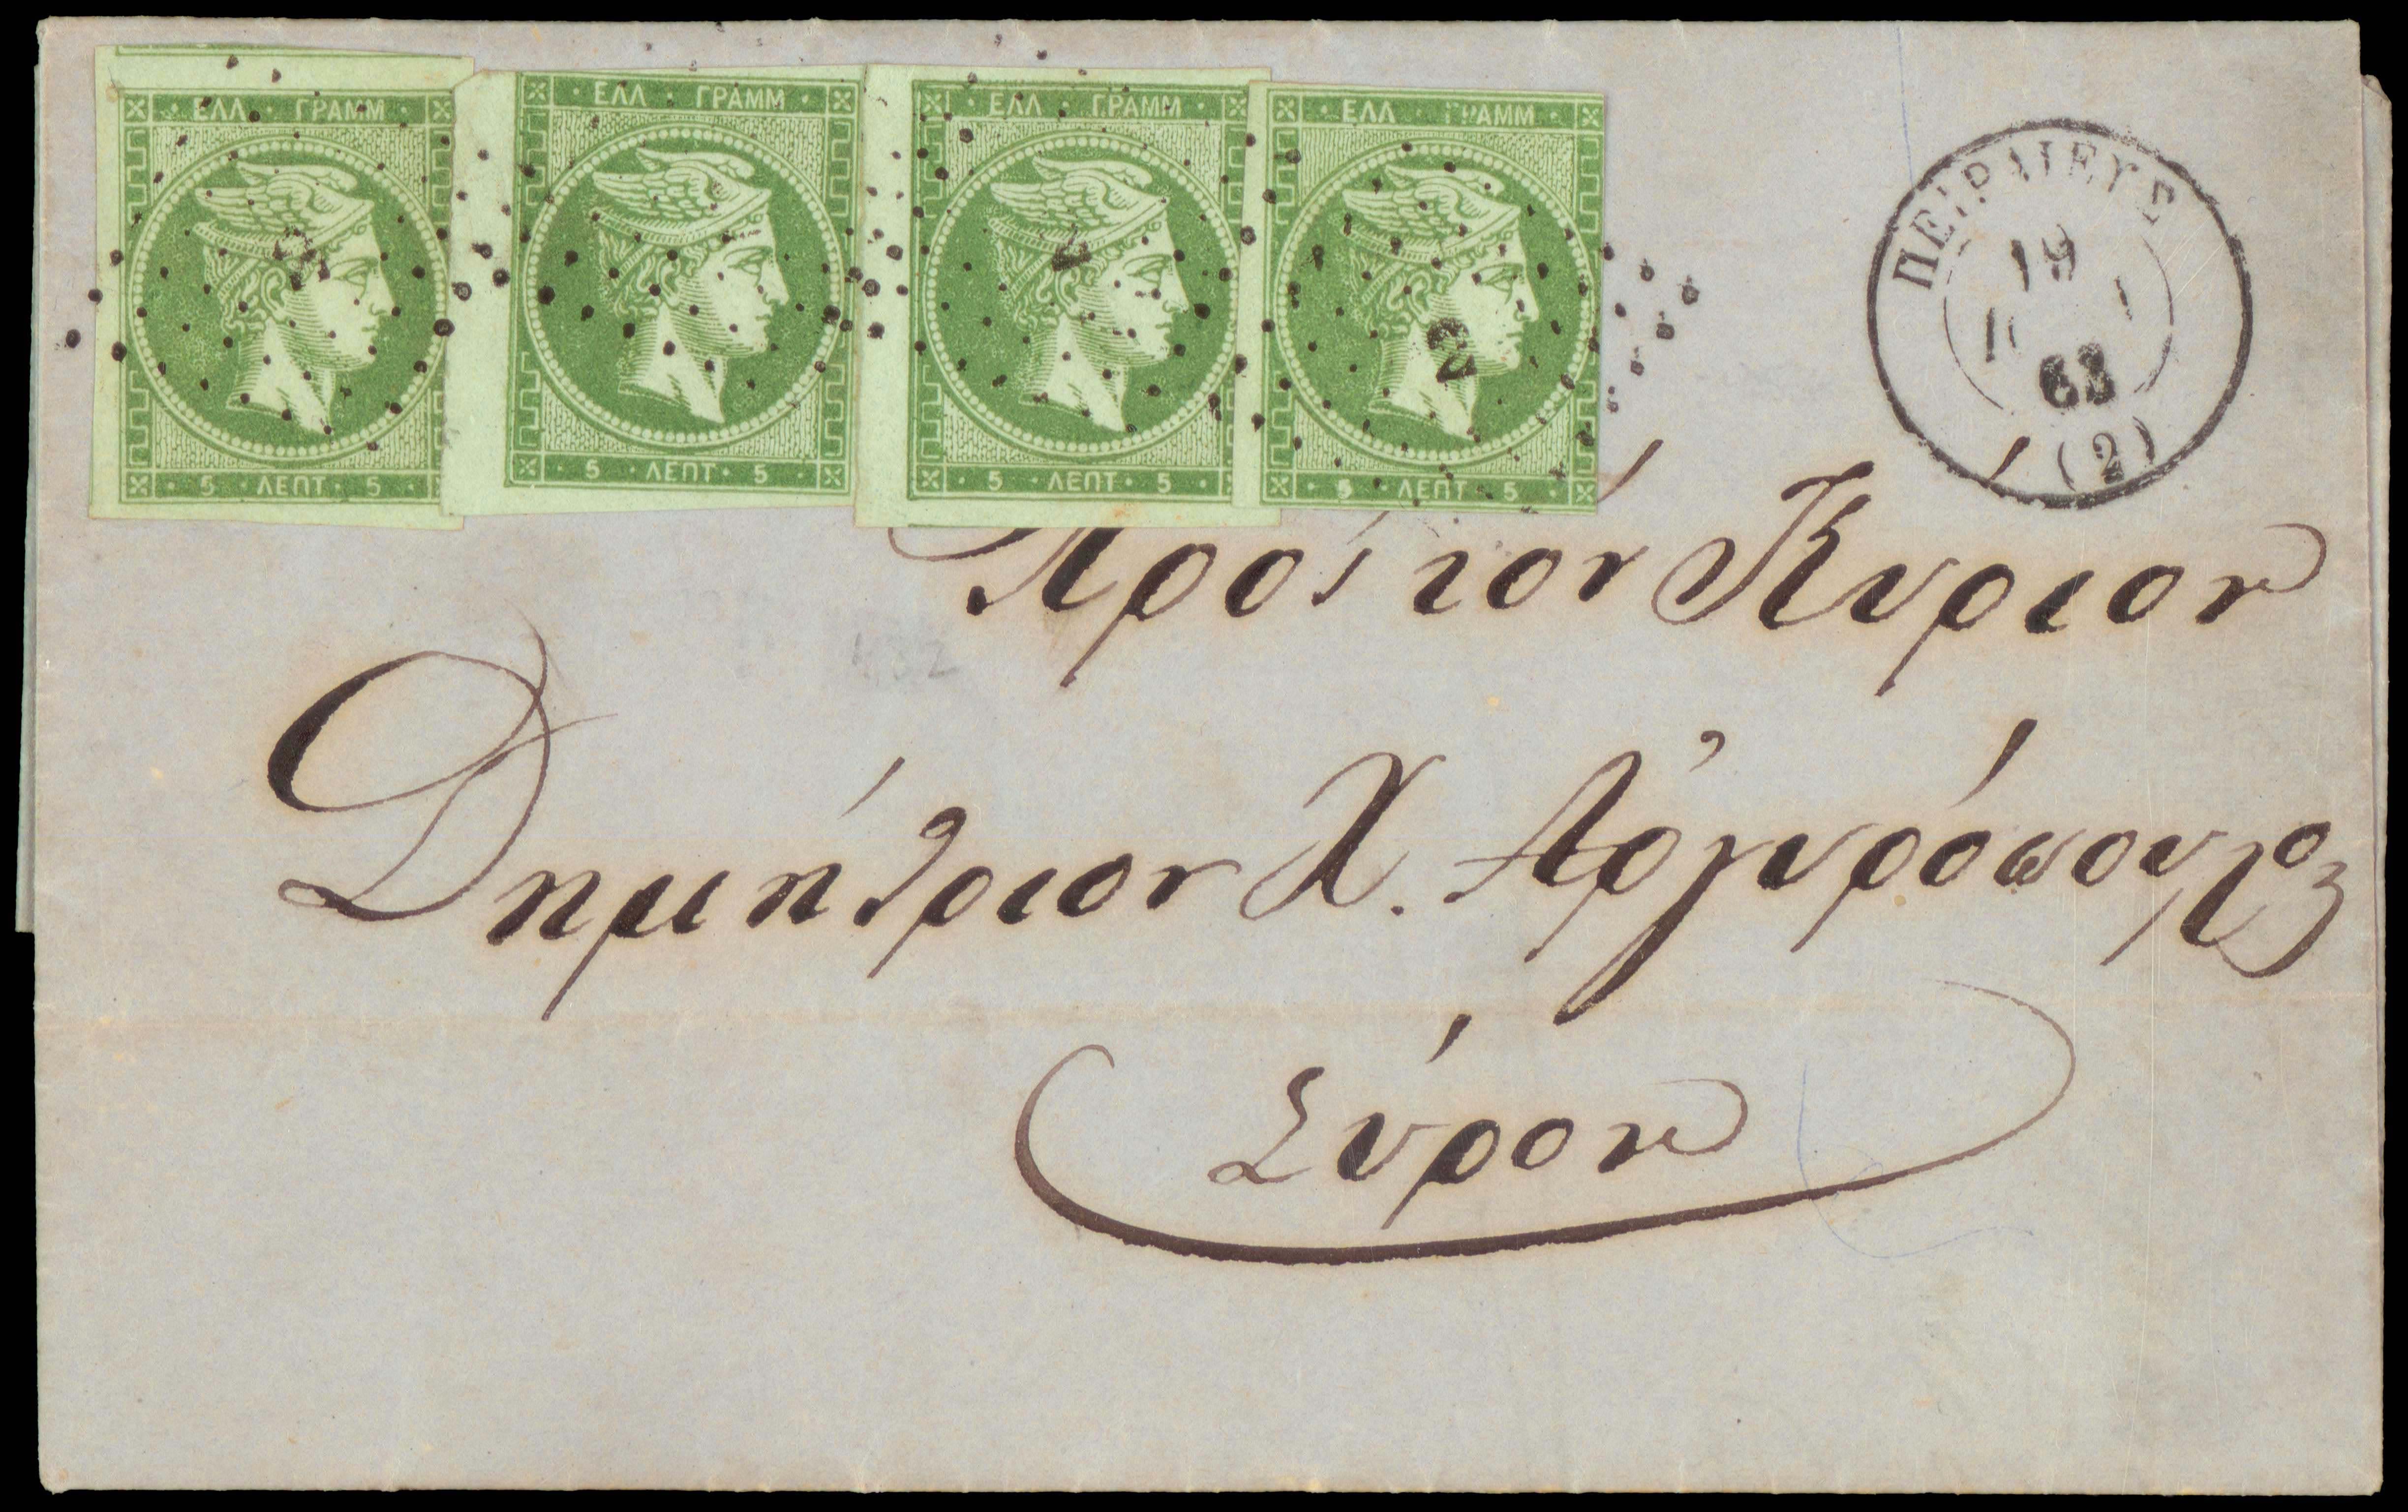 ΕΛΛ · ΓΡΑΜΜ
5 · ΛΕΠΤ · 5
ΕΛΛ · ΓΡΑΜΜ
5 · ΛΕΠΤ · 5
ΕΛΛ · ΓΡΑΜΜ
5 · ΛΕΠΤ · 5
ΕΛΛ · ΓΡΑΜΜ
5 · ΛΕΠΤ · 5
2
ΠΕΙΡΑΙΕΥΣ
19
63
(2)
Πρὸς τὸν Κύριον
Δημήτριον Χ. Ἀργυρόπουλον
Σύρον